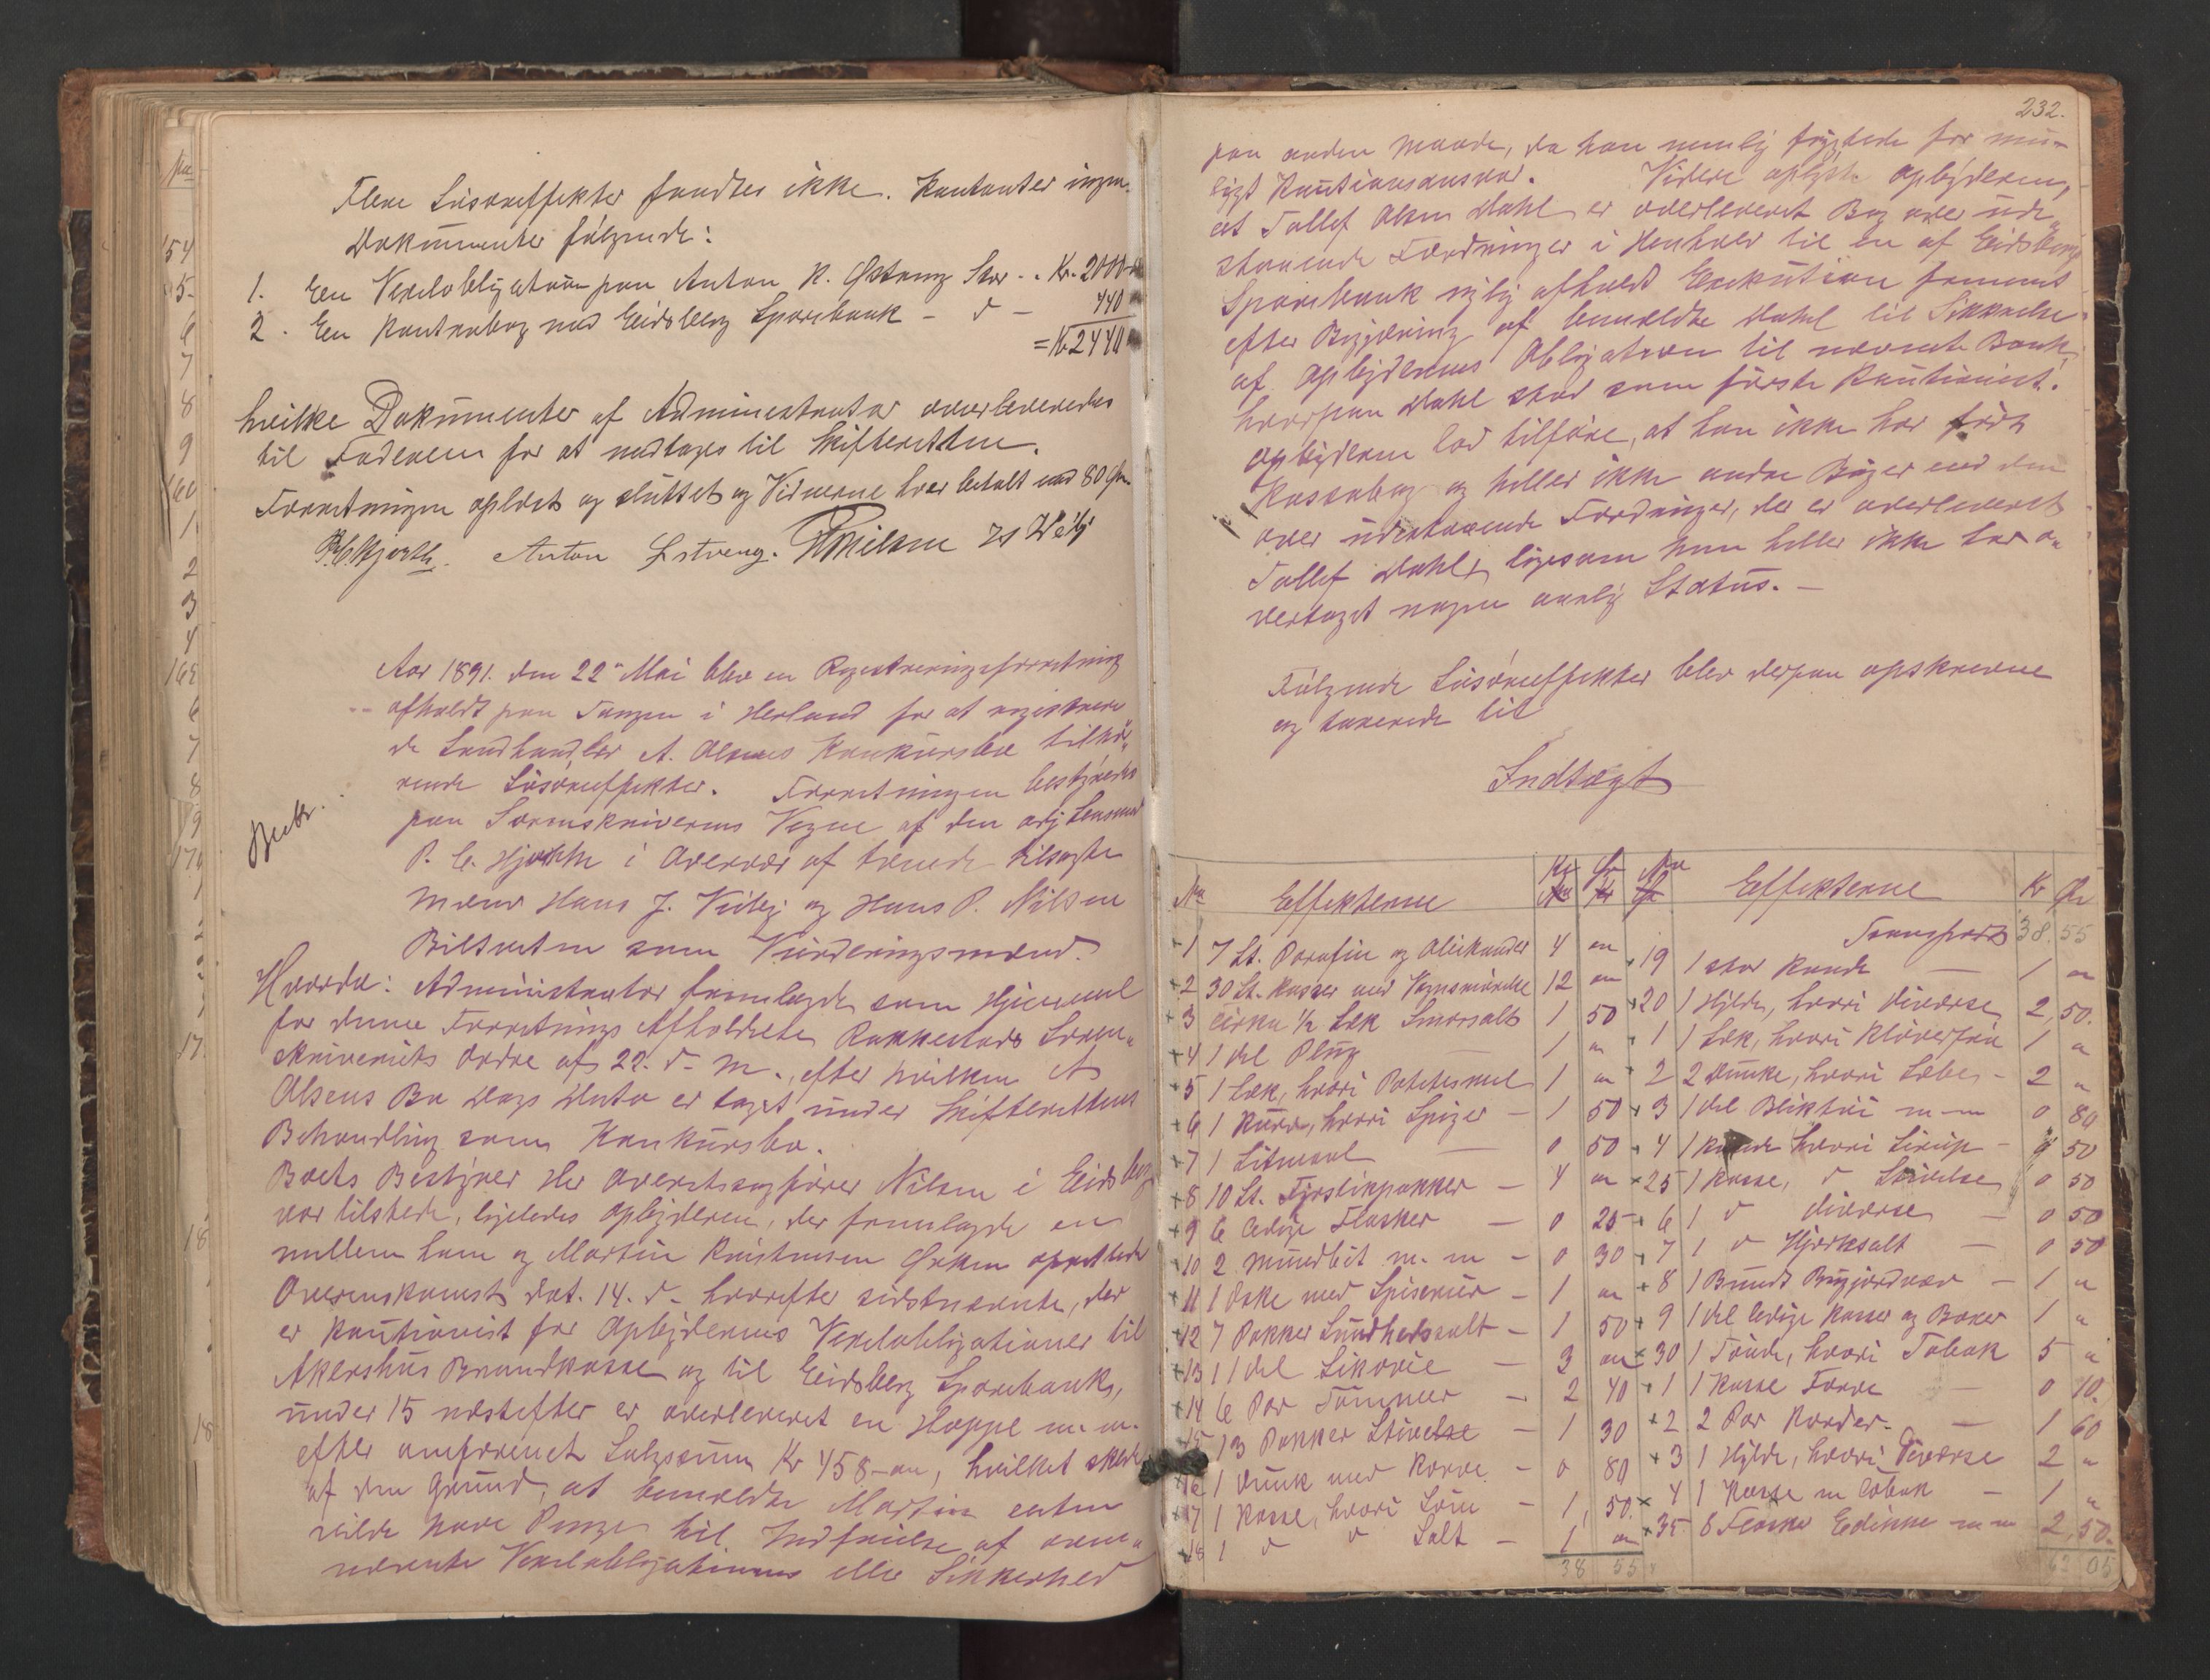 Flere Lösöreeffekter fandtes ikke. Kontanter ingen.
Dokumenter följende:
1. En Vexelobligation paa Anton K. Østeng Stor - Kr. 2000
2. En Kontrabog med Eidsberg Sparebank - d - 440
= Kr 2440
hvilke Dokumenter af Administrator overleveredes
til Faderen for at medtages til Skifteretten.
Forretningen oplæst og sluttet og Vidnerne hver betalt med 80 Øre.
P. C. Hjorth. Anton Østreng. Nilsen
Aar 1891. den 22de Mai blev en Registreringsforretning
afholdt paa Tangen i Herland for at registrere
de Landhandler A. Olsens Konkursbo tilhö„
rende Lösöreeffekter. Forretningen bestyredes
paa Sorenskriverens Vegne af den adj Lensmand
P. C. Hjorth i Overvær af tvende tilsagte
Mænd Hans J. Viiby og Hans P. Nilsen
som Vurderingsmænd.
Hvorda: Administrator fremlagde som Hjemmel
for denne Forretnings Afholdelse Rakkestads Soren„
skriveriets Ordre af 22. d. M., efter hvilken A
Olsens Bo Dags Dato er taget under Skifterettens
Behandling som Konkursbo.
Boets Bestyrer Hr Overretssagförer Nilsen i Eidsberg
var tilstede, ligeledes Opbyderen, der fremlagde en
mellem ham og Martin Kristensen oprettede
Overenskomst dat. 14. d. hvorefter sidstnævnte, der
er Kautionist for Opbyderens Vexelobligationer til
Akershus Brandkasse og til Eidsberg Sparebank,
under 15 næstefter er overleveret en Hoppe m. m.
efter omforenet Salgssum Kr 458 -, hvilket skede
af den Grund, at bemeldte Martin enten
vilde have Penge til Indfrielse af oven„
nævnte Vexelobligationer eller Sikkerhed
232.
paa anden Maade, da han nemlig frygtede for mu„
ligt Kautionsansvar. Videre oplyste Opbyderen,
at Tollef Olsen Dahl er overleveret Bog over ude„
staaende Fordringer i Henhold til en af Eidsberg
Sparebank nylig afholdt Exekution fremmet
efter Begjæring af bemeldte Dahl til Sikkerhed
af Opbyderens Obligation til nævnte Bank,
hvorpaa Dahl stod som förste Kautionist.
Opbyderen lod tilföre, at han ikke har fört
Kassabog og heller ikke andre Böger end den
over udestaaende Fordringer, der er overleveret
Tollef Dahl, ligesom han heller ikke har o„
vertaget nogen aarlig Status. -
Fölgende Lösöreeffekter blev derpaa opskrevne
og taxerede til
Indtægt
No Effekterne Kr Øre No Effekterne Kr Øre
1 7 Lt. Parafin og Oliekander 4 „
2 30 Lt. Kasser med Vognsmörelse 12 „
3 cirka ½ Sæk Smörsalt 1 50
4 1 Del Plug 1 „
5 1 Sæk, hvori Potetesmel 1 „
6 1 Kurv, hvori Spiger - 1 50
7 1 0 50
8 10 Lt. Fyrstikpakker - 4 „
9 6 ledige Flasker - 0 25
10 2 Mundbit m. m - 0 30
11 1 Æske med - 1 „
12 7 Pakker Sundhedssalt - 1 50
13 1 Del Sikorie - 3 „
14 6 Par Tömmer - 2 40
15 13 Pakker Stivelse - 1 30
16 1 Dunk med - 0 80
17 1 Kasse, hvori - 1 50
18 1 d d Salt - 1 „
38 55
Transport 38. 55
19 1 stor Kande - 1 „
20 1 Hylde, hvori diverse 2, 50.
1 1 Sæk, hvori Klöverfrö 1 „
2 2 Dunke, hvori Sæbe - 2 „
3 1 Del Bliktöi m-m 0 80
4 1 Kande hvori Sirup - 50
25 1 Kasse, d Stivelse 0 50
6 1 d diverse - 0 50
7 1 d Hjorksalt - 0 50
8 1 Bundt - 1 „
9 1 Del ledige Kasser og Boxer 1 „
30 1 Tönde, hvori Tobak 5 „
1 1 Kasse Farve - 0 10.
2 2 Par Karder. - 1 60
3 1 Hylde, hvori Diverse 2 „
4 1 Kasse m Tobak - 1 „
35 6 Flasker Edikke m m 2, 50.
62 05